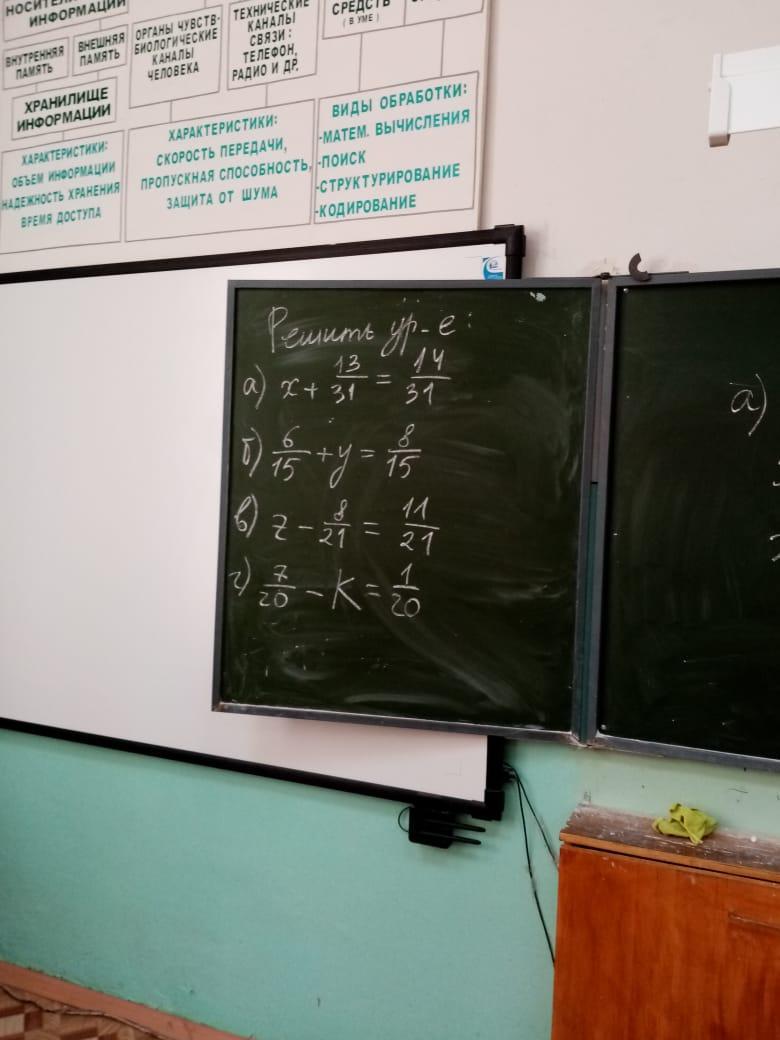 НОСИТЕЛИ
ИНФОРМАЦИИ
ВНУТРЕННЯЯ
ПАМЯТЬ
ВНЕШНЯЯ
ПАМЯТЬ
ОРГАНЫ ЧУВСТВ-
БИОЛОГИЧЕСКИЕ
КАНАЛЫ
ЧЕЛОВЕКА
ТЕХНИЧЕСКИЕ
КАНАЛЫ
СВЯЗИ:
ТЕЛЕФОН,
РАДИО И ДР.
СРЕДСТВ
( В УМЕ )
ХРАНИЛИЩЕ
ИНФОРМАЦИИ
ХАРАКТЕРИСТИКИ:
ОБЪЕМ ИНФОРМАЦИИ
НАДЕЖНОСТЬ ХРАНЕНИЯ
ВРЕМЯ ДОСТУПА
ХАРАКТЕРИСТИКИ:
СКОРОСТЬ ПЕРЕДАЧИ,
ПРОПУСКНАЯ СПОСОБНОСТЬ,
ЗАЩИТА ОТ ШУМА
ВИДЫ ОБРАБОТКИ:
-МАТЕМ. ВЫЧИСЛЕНИЯ
-ПОИСК
-СТРУКТУРИРОВАНИЕ
-КОДИРОВАНИЕ
Решить ур-е:
а) x + 13/31 = 14/31
б) 6/15 + y = 8/15
в) z - 8/21 = 11/21
г) 7/20 - K = 1/20
а)